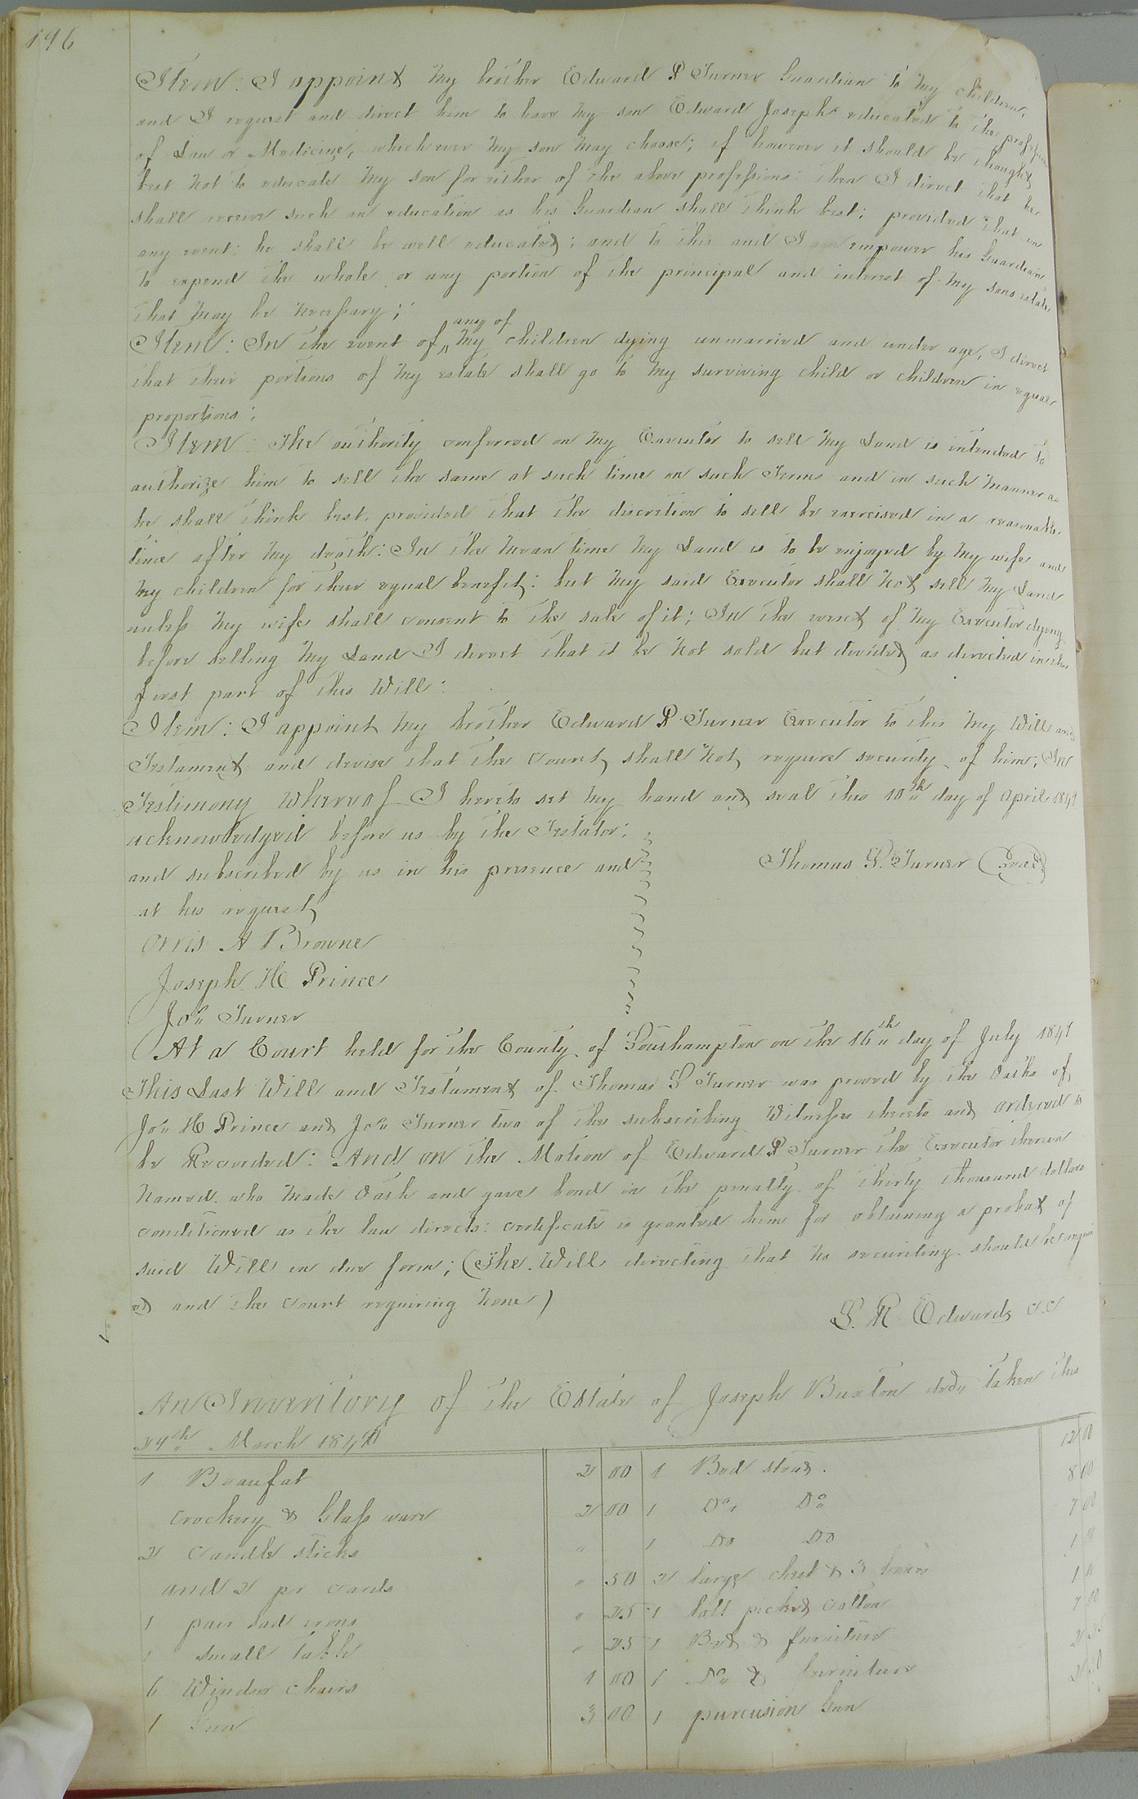 196
Item: I appoint my brother Edward P Turner Guardian to my children,
and I request and direct him to have my son Edward Joseph educated to the profession
of Law or Medicine, which ever my son may choose; if however it should be thought
best not to educate my son for either of the above professions: then I direct that he
shall receive such an education as his Guardian shall think best; provided that in
any event: he shall be well educated; and to this end I empower his Guardian
to expend the whole or any portion of the principal and interest of my sons estate
that may be necessary;
any of
Item: In the event of my children dying unmarried and under age, I direct
that their portions of my estate shall go to my surviving child or children in equal
proportions:
Item: The authority conferred on my Executor to sell my Land is intended to
authorize him to sell the same at such time on such Terms and in such manner as
he shall think best, provided that the discretion to sell be exercised in a reasonable
time after my death: In the mean time my Land is to be enjoyed by my wife and
my children for their equal benefit: but my said Executor shall not sell my Land
unless my wife shall consent to the sale of it; In the event of my Executor dying
before selling my Land I direct that it be not sold but divided as directed in the
first part of this Will:
Item: I appoint my brother Edward P. Turner Executor to this my Will and
Testament and devise that the court shall not require security of him; In
Testimony Whereof I hereto set my hand and seal this 10th day of April 1847
acknowledged before us by the Testator:
and subscribed by us in his presence and
at his request
Thomas S. Turner Seal
Orris A Browne
Joseph H Prince
Jos Turner
At a Court held for the County of Southampton on the 16th day of July 1847
This Last Will and Testament of Thomas S Turner was proved by the Oaths of
Jos H Prince and Jos Turner two of the subscribing Witnesses thereto and ordered to
be Recorded: And on the Motion of Edward P Turner the Executor therein
named who made Oath and gave bond in the penalty of thirty thousand dollars
conditioned as the law directs: certificate is granted him for obtaining a probat of
said Will in due form; (The Will directing that no security should be requir
ed and the court requiring none)
L. R Edwards C.C
An Inventory of the Estate of Joseph Buxton decd taken this
24th March 1847
1 Beaufat 2 00 1 Bed stead. 12 00
crockery & Glass ware 2 00 1 Do Do 8 00
2 candle sticks " 1 Do Do 7 00
and 2 pr cards " 50 2 large chest & 3 1
1 pair sad irons " 25 1 picked cotton 1
1 small table " 25 1 Bed & furniture 7 00
6 Windsor chairs 1 00 1 Do & furniture
1 Gun 3 00 1 purcusion Gun